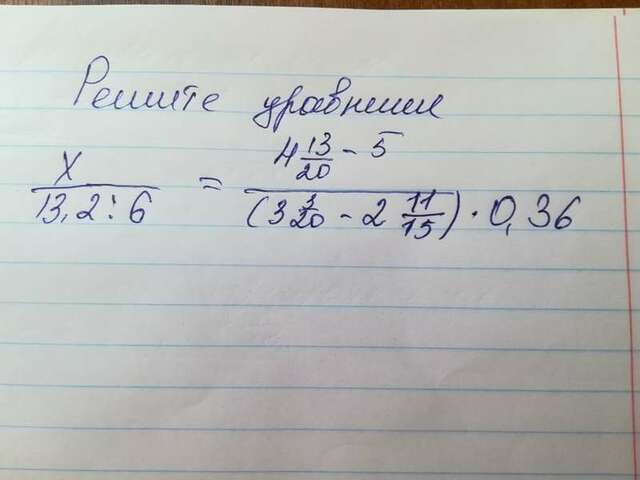 Решите уравнении
x / 13,2:6 = 4 13/20 - 5 / (3 3/20 - 2 11/15) · 0,36